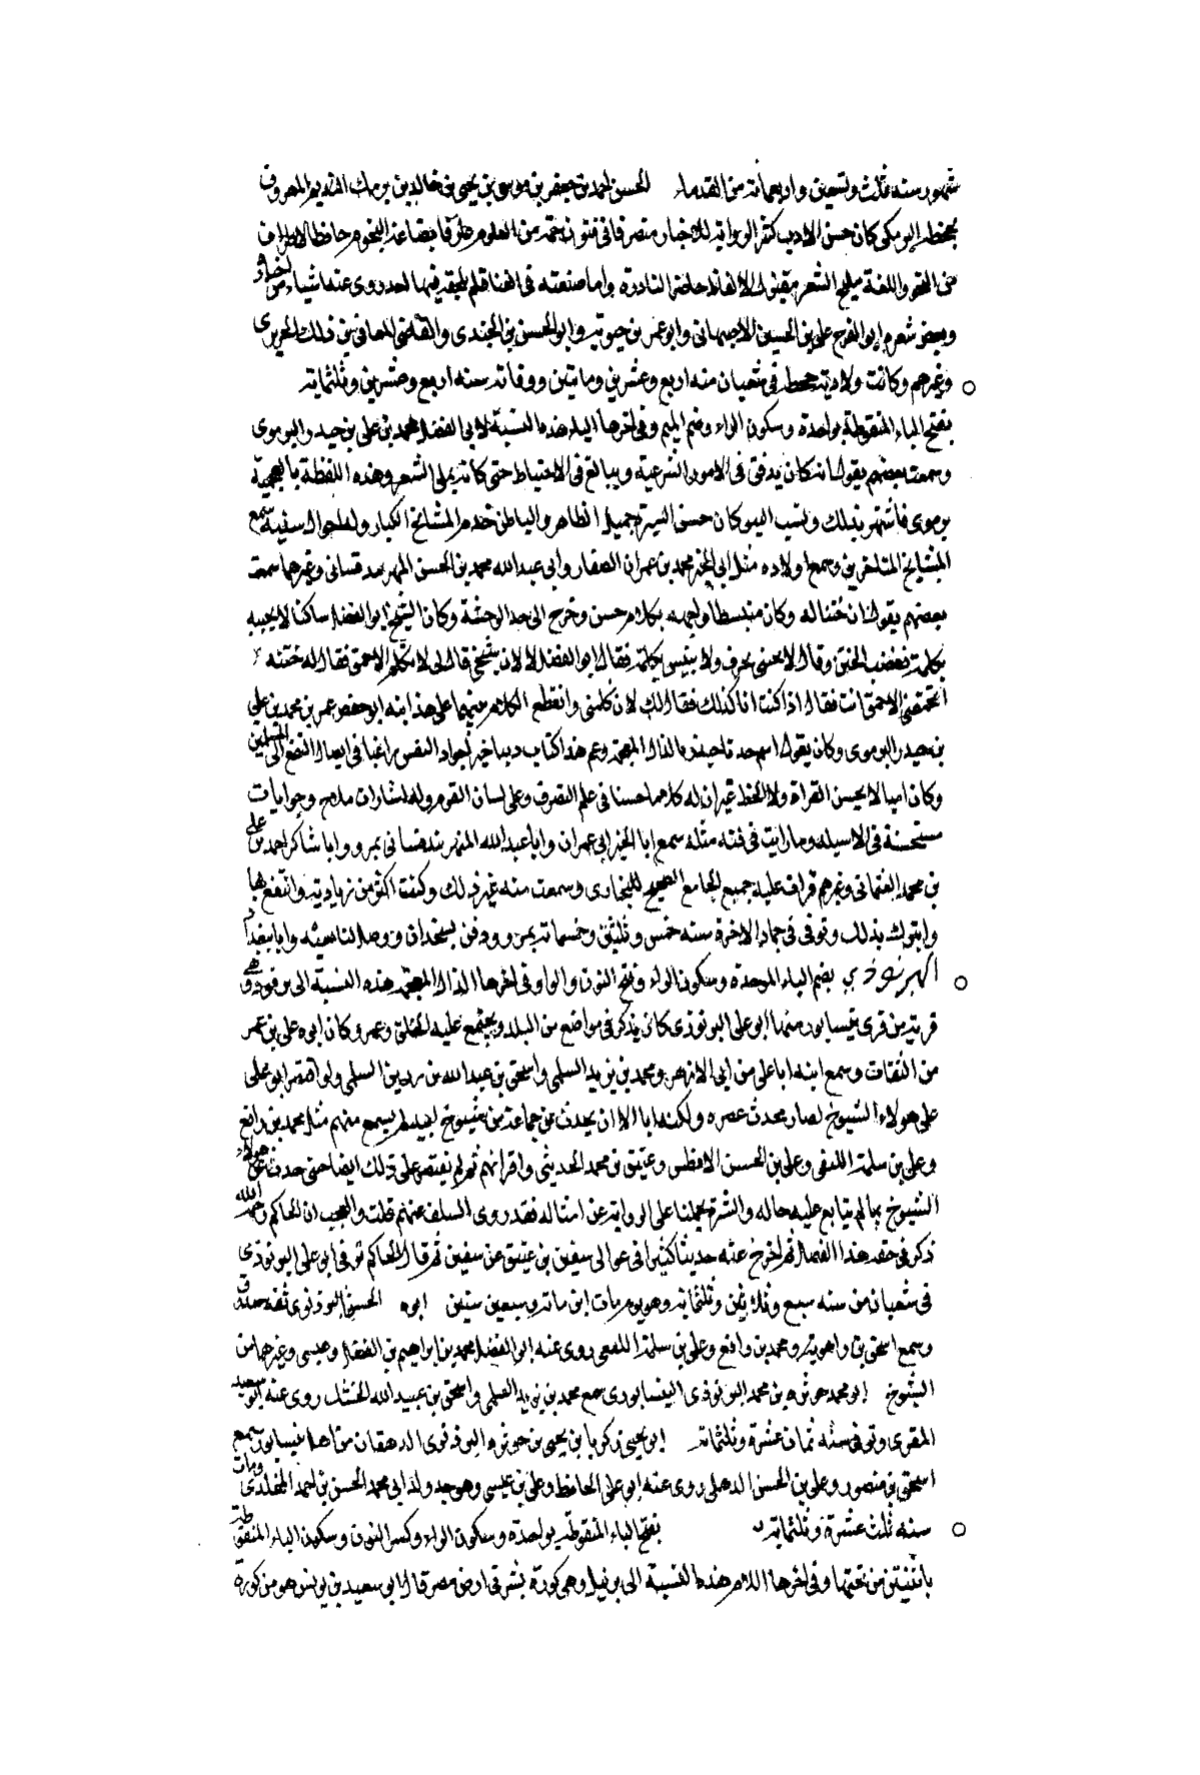 شهور سنه ثلث وتسعين واربعمائة من القدماء الحسن احمد بن جعفر بن موسى بن يحيى بن خالد بن برمك النديم المعروف
بجحظه البرمكى كان حسن الادب كثير الرواية للاخبار متصرفا فى فنون جمة من العلوم عارفا بصناعة النجوم حافظا لاطراف
من النحو واللغة مليح الشعر مقبول الالفاظ حاضر النادرة واما صنعته فى الغنا فلم يلحقه فيها احد روى عنه اشياء من اخباره
وبعض شعره ابو الفرج على بن الحسين الاصبهانى وابو عمر بن حيويه وابو الحسن بن الجندى والقاضى المعافى بن زكريا الجريرى
وغيرهم وكانت ولادته جحظه فى شعبان سنه اربع وعشرين ومايتين ووفاته سنه اربع وعشرين وثلثمائة
بفتح الباء المنقوطة بواحدة وسكون الراء وضم الميم وفى اخرها الياء هذه النسبة لابى الفضل محمد بن على بن حيدر البرموى
وسمعت بعضهم يقول انه كان يدقق فى الامور الشرعية ويبالغ فى الاحتياط حتى كان يملى الشعر وهذه اللفظة بالعجمية
برموى فاشتهر بذلك ونسب اليه وكان حسن السيرة جميل الظاهر والباطن خدم المشايخ الكبار سمع
المشايخ المتاخرين وسمع اولاده مثل ابى الخير محمد بن عمران الصفار وابى عبد الله محمد بن الحسن المهربندقشانى وغيرهما سمعت
بعضهم يقول ان ختنا له وكان منبسطا واجهه بكلام حسن وخرج الى حد الوحشة وكان الشيخ ابو الفضل ساكتا لا يجيبه
بكلمة فغضب الختن وقال لا يحسن بحرف ولا ينبس بكلمة فقال ابو الفضل لا لان شيخى قال لى لا تكلم الاحمق فقال له ختنه
احمقتنى الاحمق انت فقال اذا كنت انا كذلك فقال لك لان كلمنى وانقطع الكلام بينهما على هذا ابنه ابو حفص عمر بن محمد بن على
بن حيدر البرموى وكان يقول اسم جدنا حيذر بالذال المعجمة وعم هذا كتاب دينا خيرا جواد النفس راغبا فى ايصال النفع الى المسلمين
وكان اميا لا يحسن القراة ولا الخط غير ان له كلاما حسنا فى علم التصرف وعلى لسان القوم وله اشارات وجوابات
مستحسنة فى الاسيله وما رايت فى فنه مثله سمع ابا الخير بن ابى عمران وابا عبد الله المهربندقشانى بمرو وابا شاكر احمد بن على
بن محمد العثمانى وغيرهم قرات عليه جميع الجامع الصحيح للبخارى وسمعت منه غير ذلك وكنت اكثر من زيارته وانتفع بها
واتبرك بذلك وتوفى فى جماد الاخرة سنه خمس وثلثين وخمسمائة بمرو ودفن بسنجدان
البرنوذي بضم الباء الموحدة وسكون الراء وفتح النون والواو فى اخرها الذال المعجمة هذه النسبة الى برنوذ وهى
قرية من قرى نيسابور منها ابو على البرنوذى كان يذكر فى مواضع من البلد ويجتمع عليه الخلق وعمر وكان ابوه على بن عمر
من الثقات وسمع ابنه ابا على من ابى الازهر ومحمد بن يزيد السلمى واسحق بن عبد الله بن رزين السلمى ولو اقتصر ابو على
على هولاء الشيوخ لصار محدث عصره ولكنه ابا الا ان يحدث عن جماعة من شيوخ ابيه لم يسمع منهم مثل محمد بن رافع
وعلى بن سلمة اللبقى وعلى بن الحسن الافطس وعتيق بن محمد الحديثى واقرانهم ثم لم يقتصر على ذلك ايضا حتى حدث عن هولاء
الشيوخ بما لم يتابع عليه حاله والشرة يحملنا على الرواية عن امثاله فقد روى السلف عنهم قلت والعجب ان الحاكم رحمه الله
ذكر فى حقه هذا الفصل ثم اخرج عنه حديثا كثيرا فى عوالى سفين بن عتيق عن سفين ثم قال الحاكم توفى ابو على البرنوذى
فى شعبان من سنه سبع وثلاثين وثلثمائة وهو يوم مات ابن مائة وسبعين سنين ابوه الحسن البرنوذى ثقه صدوق
وسمع اسحق بن راهويه ومحمد بن رافع وعلى بن سلمة اللبقى روى عنه ابو الفضل محمد بن ابراهيم بن الفضل وعيسى وغيرهما من
الشيوخ ابو محمد حوثره بن محمد البرنوذى النيسابورى سمع محمد بن يزيد السلمى واسحق بن عبيد الله الخشك روى عنه ابو سعيد
المقرى وتوفى سنه ثمان عشرة وثلثمائة ابو يحيى زكريا بن يحيى بن حوثره البرنوذى الدهقان من اهل نيسابور سمع
اسحق بن منصور وعلى بن الحسن الدهلى روى عنه ابو على الحافظ وعلى بن عيسى وهو جد والد ابى محمد الحسن بن احمد المخلدى ومات
سنه ثلث عشرة وثلثمائة بفتح الباء المنقوطة بواحدة وسكون الراء وكسر النون وسكون الياء المنقوطة
باثنتين من تحتها وفى اخرها اللام هذه النسبة الى برنيل وهى كورة بشرقى ارض مصر قال ابو سعيد بن يونس هو من كورة